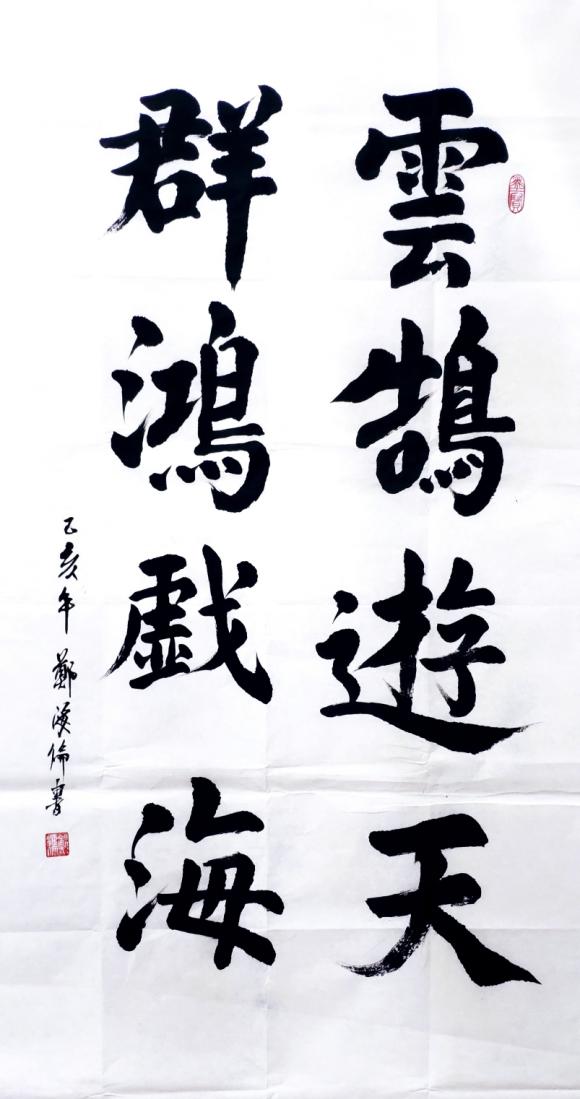 雲鵠遊天
群鴻戯海
己亥年 鄭漢倫書